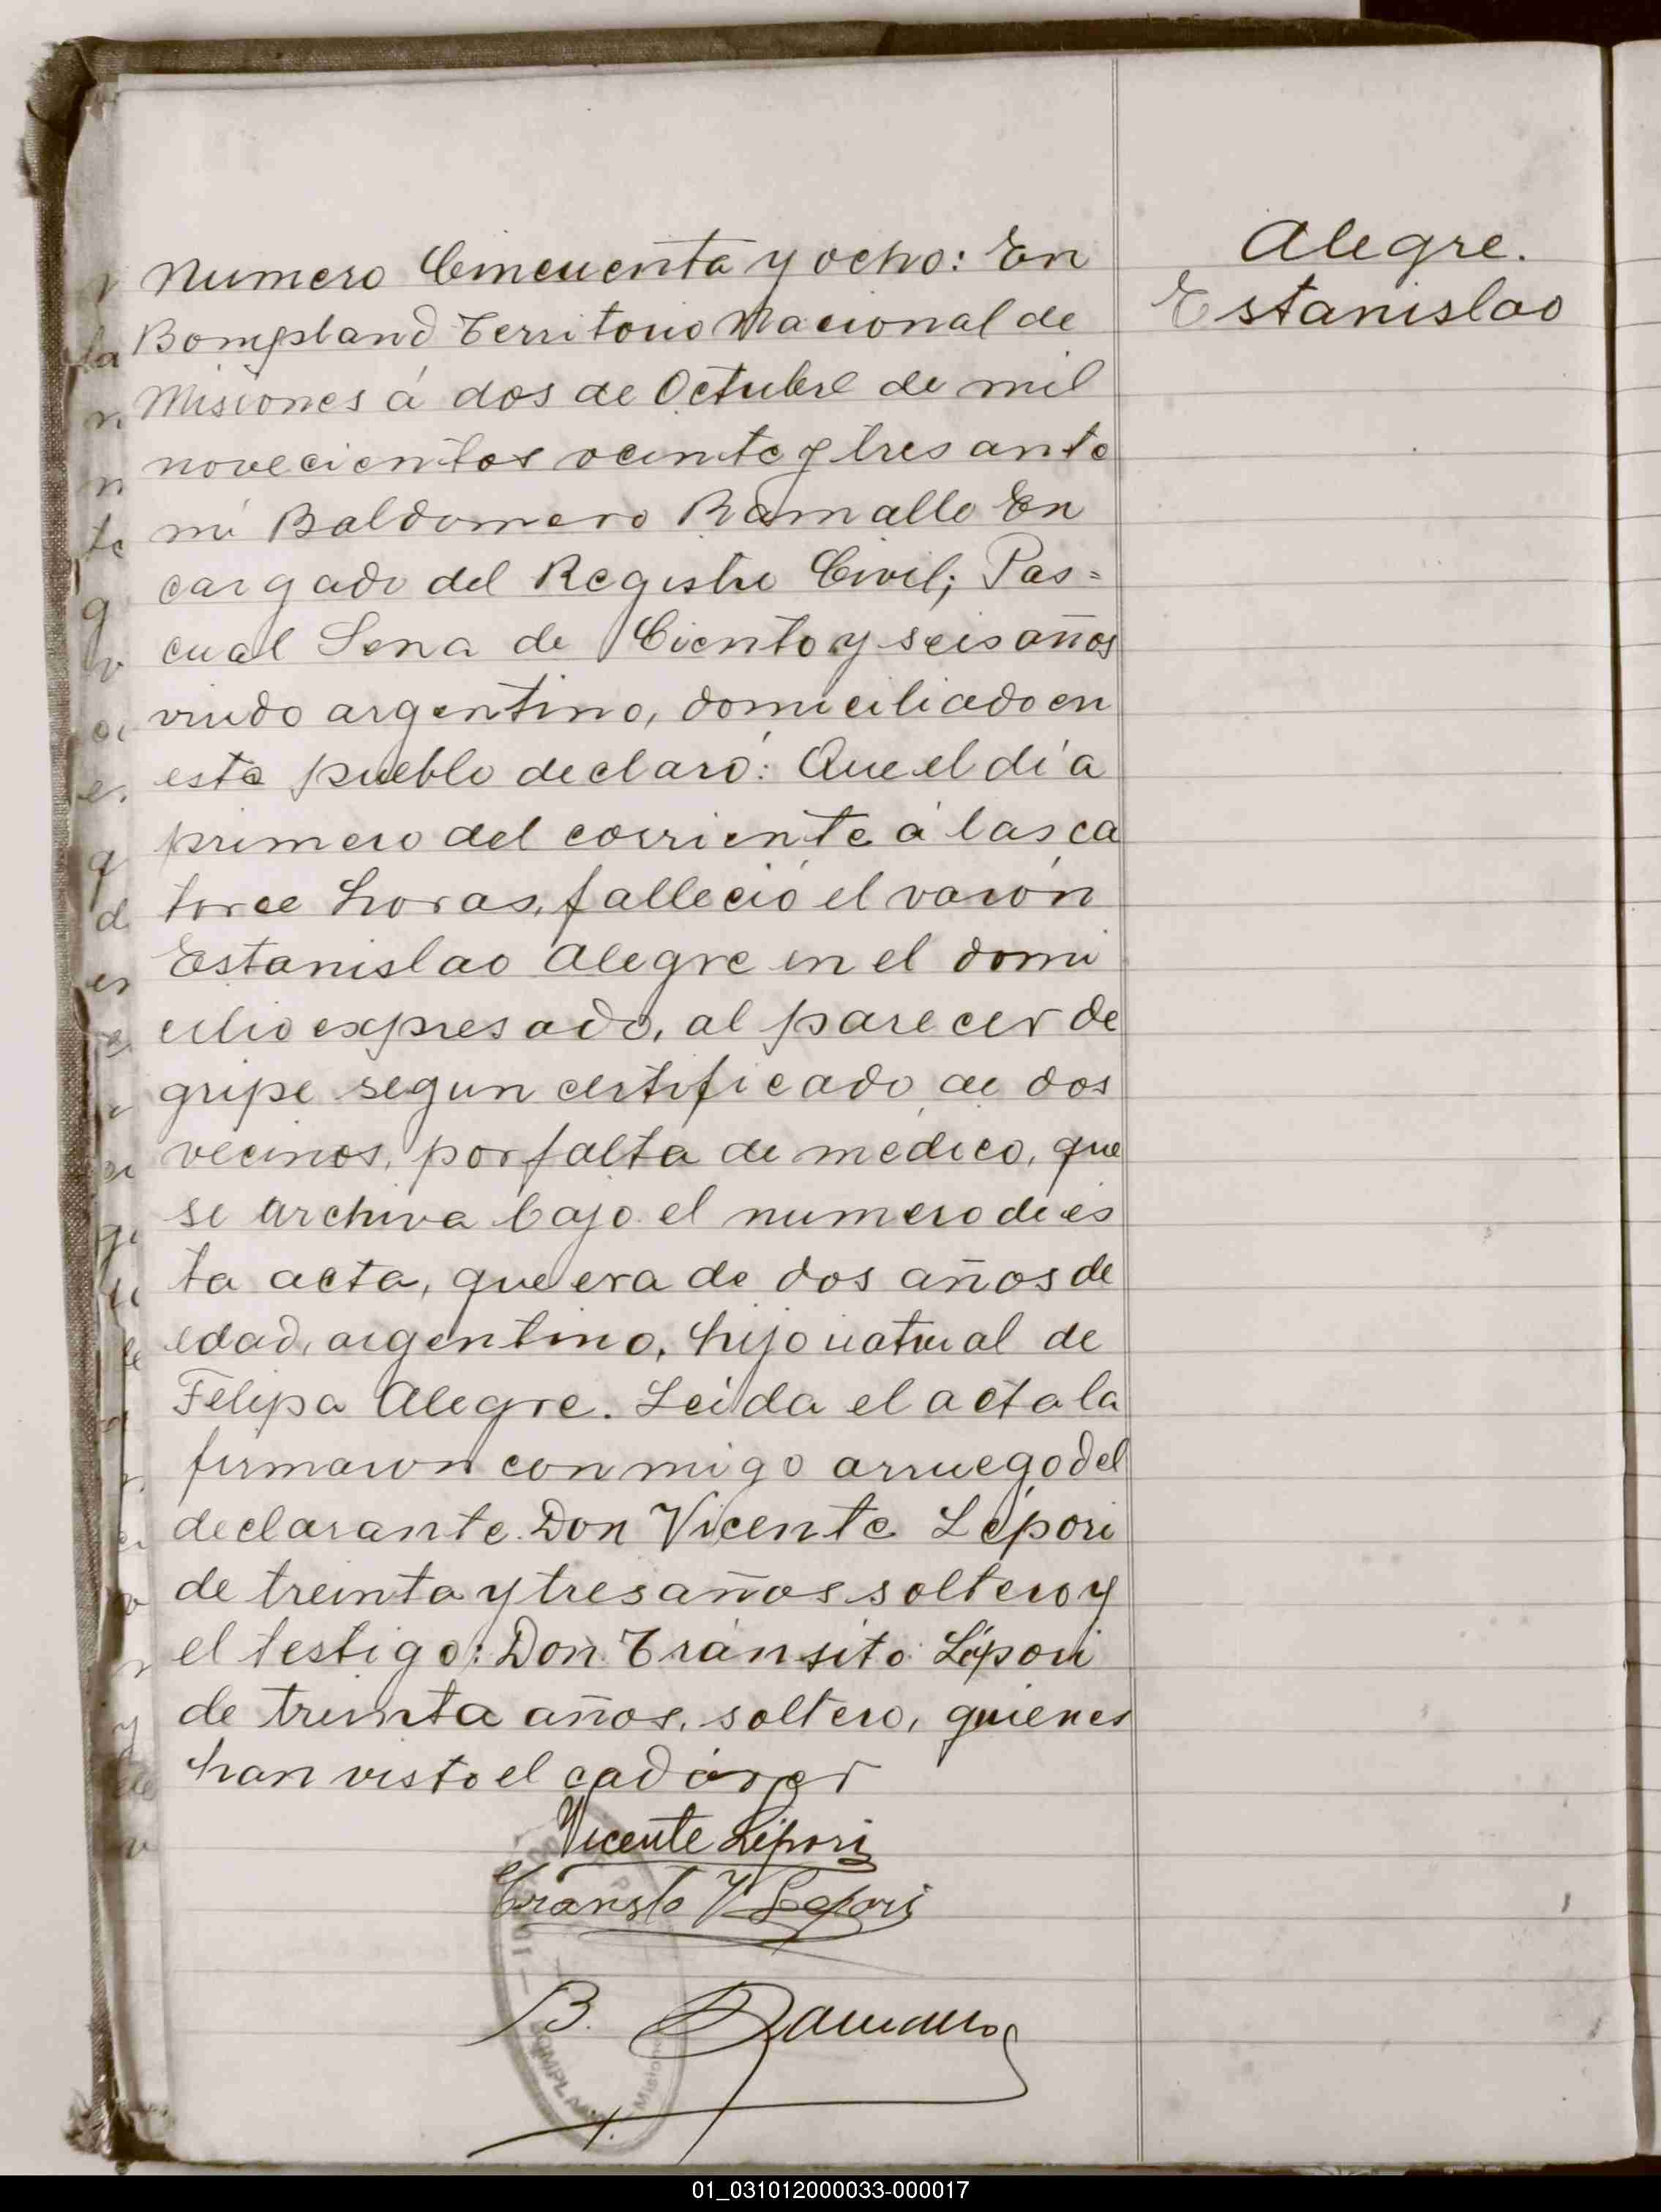 Numero Cincuenta y ocho: En
Bompland Territorio Nacional de
Misiones á dos de Octubre de mil
novecientos veinte y tres ante
mi Baldomero Ramallo En
cargado del Registro Civil; Pas=
cual Sena de Ciento y seis años
viudo argentino, domiciliado en
este pueblo declaró: Que el día
primero del corriente á las ca
torce horas, falleció el varón
Estanislao Alegre en el domi
cilio expresado, al parecer de
gripe segun certificado de dos
vecinos, por falta de médico, que
se archiva bajo el numero de es
ta acta, que era de dos años de
edad, argentino, hijo natural de
Felipa Alegre. Leída el acta la
firmaron conmigo arruego del
declarante Don Vicente Lépori
de treinta y tres años soltero y
el testigo: Don Tránsito Lépori
de treinta años, soltero, quienes
han visto el cadáver
Vicente Lépori
Transito V Lepori
B. Ramallo
Alegre.
Estanislao
BOMPLAND
Misiones
01_031012000033-000017